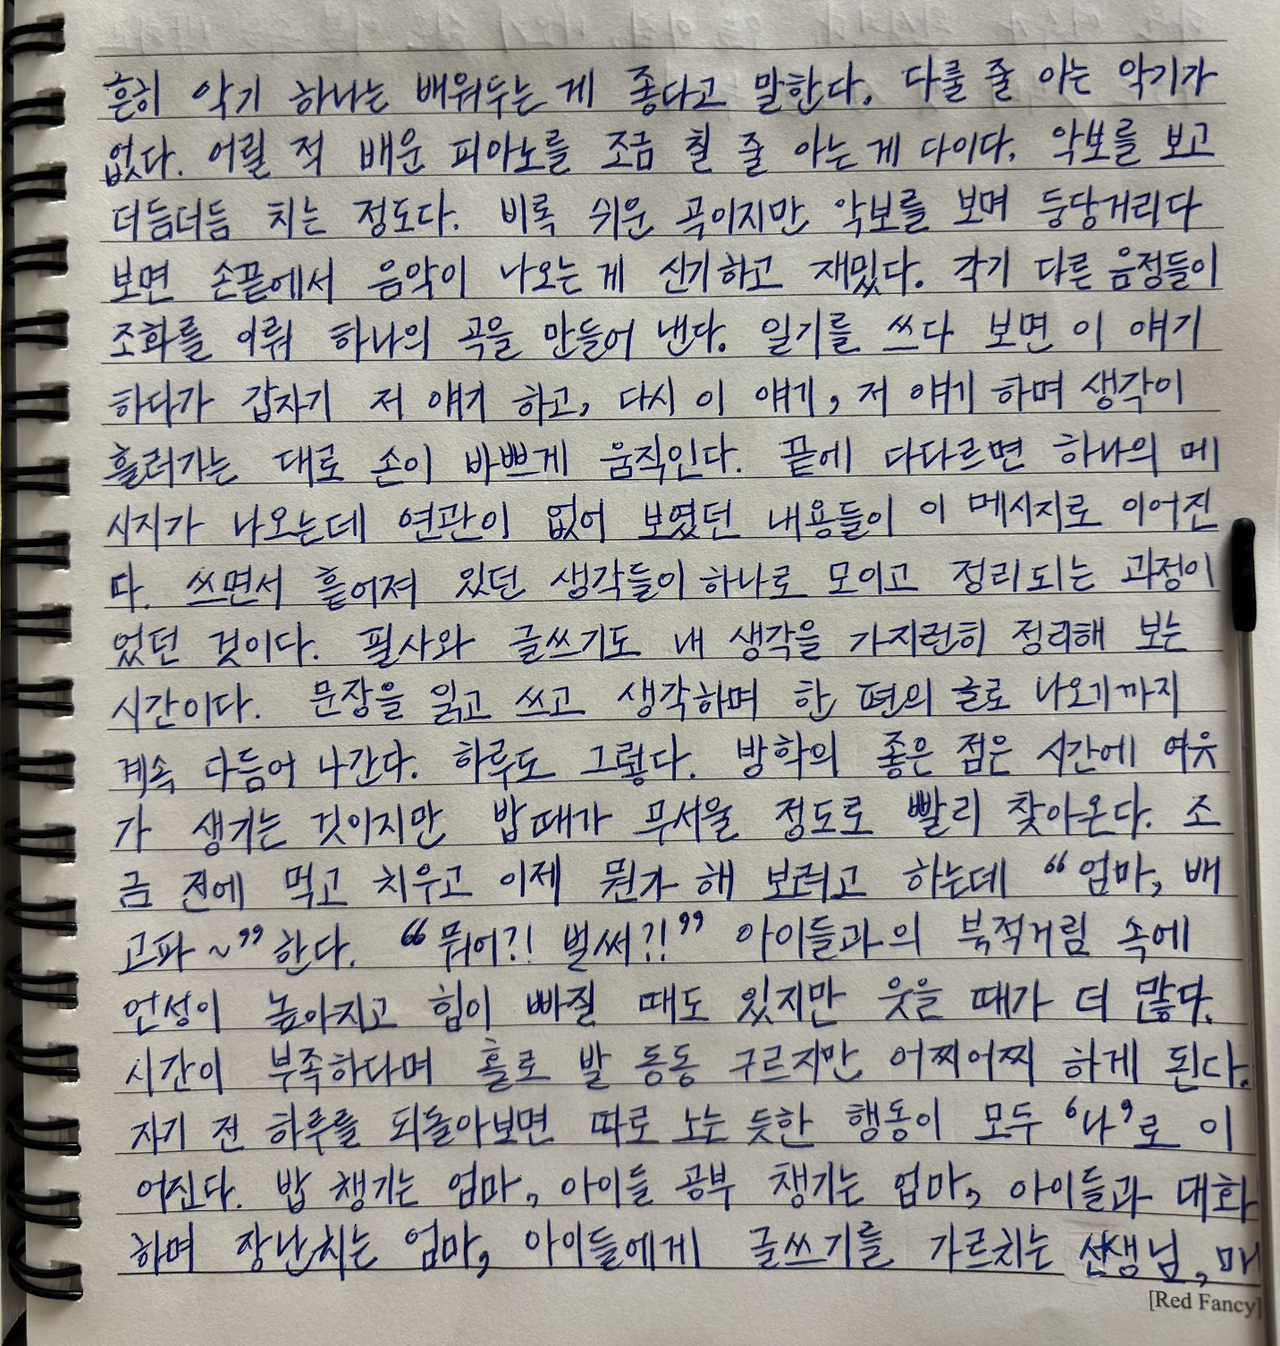 흔히 악기 하나는 배워두는 게 좋다고 말한다. 다룰 줄 아는 악기가
없다. 어릴 적 배운 피아노를 조금 칠 줄 아는 게 다이다. 악보를 보고
더듬더듬 치는 정도다. 비록 쉬운 곡이지만 악보를 보며 둥당거리다
보면 손끝에서 음악이 나오는 게 신기하고 재밌다. 각기 다른 음정들이
조화를 이뤄 하나의 곡을 만들어 낸다. 일기를 쓰다 보면 이 얘기
하다가 갑자기 저 얘기 하고, 다시 이 얘기, 저 얘기 하며 생각이
흘러가는 대로 손이 바쁘게 움직인다. 끝에 다다르면 하나의 메
시지가 나오는데 연관이 없어 보였던 내용들이 이 메시지로 이어진
다. 쓰면서 흩어져 있던 생각들이 하나로 모이고 정리되는 과정이
었던 것이다. 필사와 글쓰기도 내 생각을 가지런히 정리해 보는
시간이다. 문장을 읽고 쓰고 생각하며 한 편의 글로 나오기까지
계속 다듬어 나간다. 하루도 그렇다. 방학의 좋은 점은 시간에 여유
가 생기는 것이지만 밥때가 무서울 정도로 빨리 찾아온다. 조
금 전에 먹고 치우고 이제 뭔가 해 보려고 하는데 "엄마, 배
고파~" 한다. "뭐어?! 벌써?!" 아이들과의 북적거림 속에
언성이 높아지고 힘이 빠질 때도 있지만 웃을 때가 더 많다.
시간이 부족하다며 홀로 발 동동 구르지만 어찌어찌 하게 된다.
자기 전 하루를 되돌아보면 따로 노는 듯한 행동이 모두 '나'로 이
어진다. 밥 챙기는 엄마, 아이들 공부 챙기는 엄마, 아이들과 대화
하며 장난치는 엄마, 아이들에게 글쓰기를 가르치는 선생님, 마
[Red Fancy]